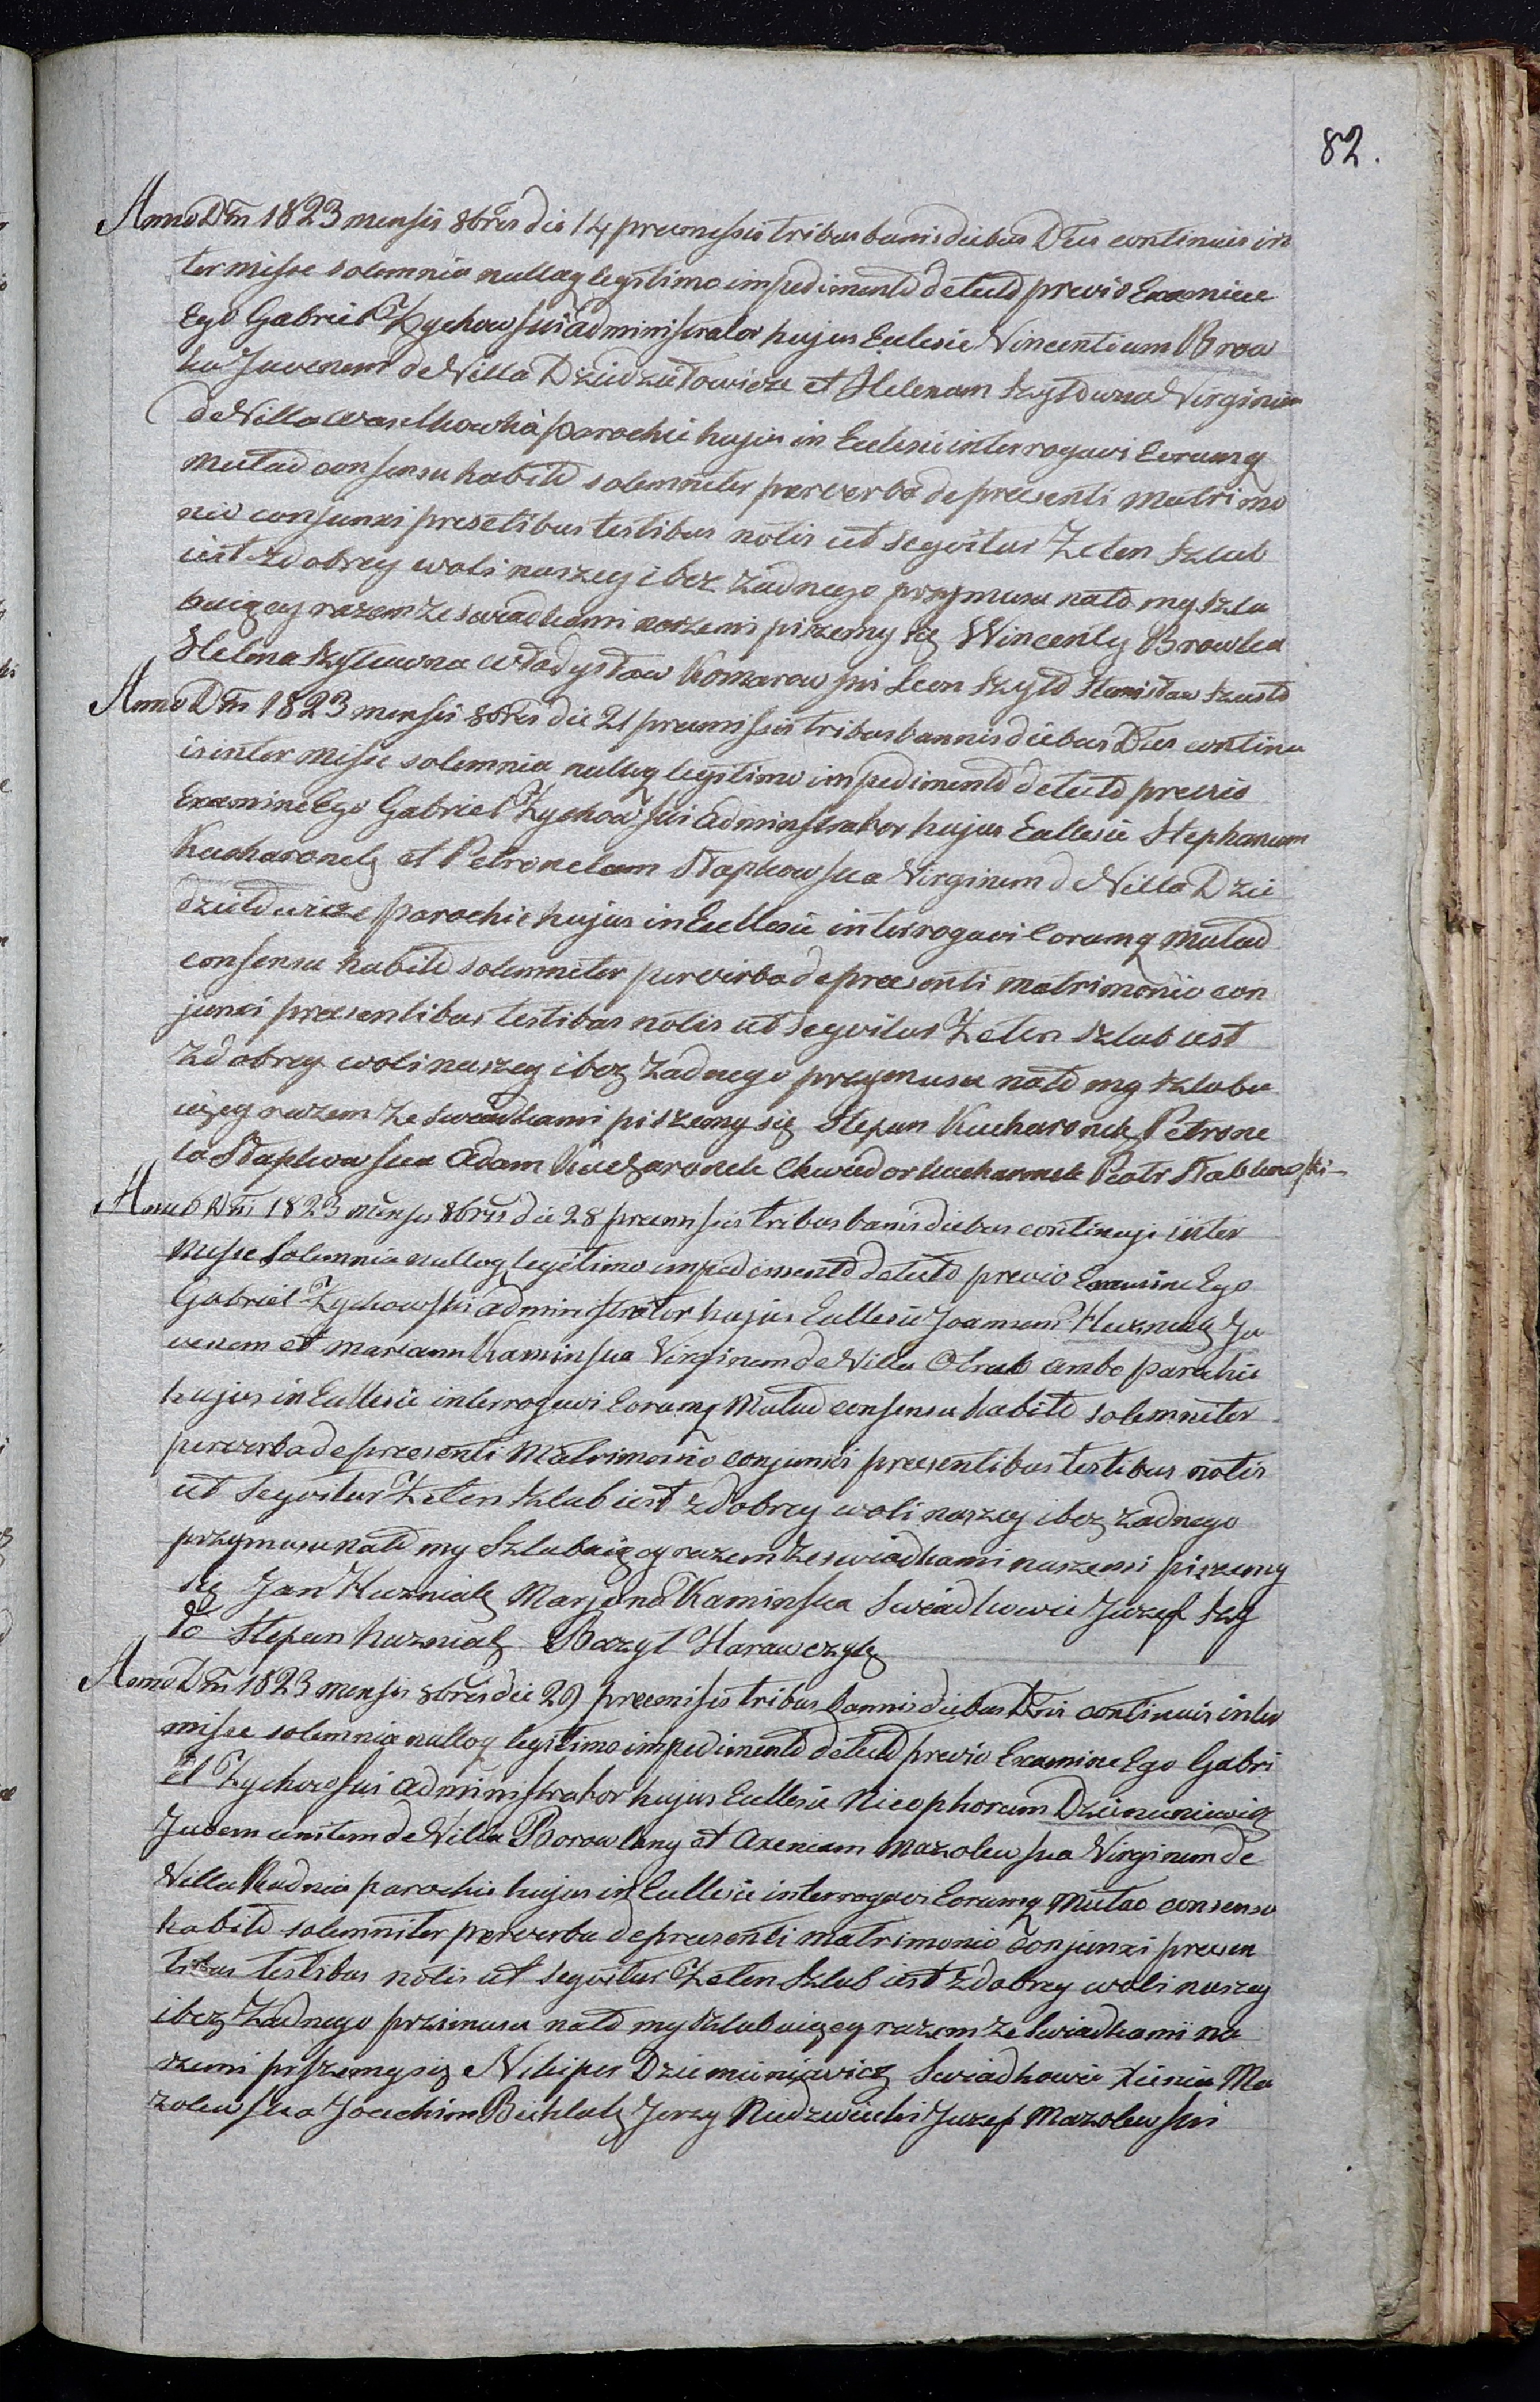 82.
Anno Dni 1823 mensis 8bris die 14 premissis tribus banis diebus Dus continuis in
ter misse solemnia nulloq legitimo impedimento detecto previo Examine
Ego Gabriel Zychowski administrator hujus Eclesie Vincentium Brow
ka Juvenem de Villa Dziedziłowicze et Helenam Szyłowna Virginem
de Villa Waselkowka parochie hujus in Eclesii interrogavi Eorumq
mutuo consensu habito solemniter per verba de presenti matrimo
nio conjunxi presetibus testibus notis ut seqvitur Że ten szlub
iest z dobrey woli naszey i bez żadnego przymusu na to my szlu
buięcy razem ze swiadkami naszemi piszemy się Wincenty Browka
Helena Szyłowna Władysław Komarowski Leon Szyło Stanisław Szusto
Anno Dni 1823 mensis 8bris die 21 premissis tribus bannis diebus Dus continu
is inter misse solemnia nulloq legitimo impedimento detecto previo
Examine Ego Gabriel Zychowski administrator hujus Eallesie Stephanum
Kucharonek et Petronelam Stapkowska Virginem de Villa Dzie
dziełowicze parochie hujus in Eccllesie interrogavi Eorumq mutuo
consensu habito solemniter per verba de preesenti matrimonio con
junxi preesentibus testibus notis ut seqvitur Że ten szlub iest
z dobrey woli naszey i bez żadnego przymusu na to my szlubu
ięcy razem ze swiadkami piszemy się Stepan Kucharonek Petrone
la Stapkowska Adam Kucharonek Chwiedor Kucharonek Piotr Stabkowski
Anno Dni 1823 menses 8bris die 28 premissis tribus banis diebus continuji inter
misse solemnia nulloq legitimo impedimento detecto previo Examine Ego
Gabriel Zychowski administrator hujus Eallesie Joannem Huzniak Ju
venem et mariann Kaminska Virginem de Villa Otrub ambo parochie
hujus in Eallesie interrogavi Eorumq Mutuo consensu habito solemniter
per verba de preesenti Matrimonio conjunxi preesentibus testibus notis
ut seqvitur Że ten szlub iest z dobrey woli naszey i bez żadnego
przymusu na to my Szlubuięcy razem ze swiadkami naszemi piszemy
się Jan Huzniak Marjana Kaminska Swiadkowie Juzef Szy
ło Stepan huzniak Bazyl Harawczyk
Anno Dni 1823 mensis 8bris die 29 preemisis tribus bannis diebus Dni continuis inter
misse solemnia nulloq legitimo impedimento detecto previo Examine Ego Gabri
el Zychowski administrator hujus Eallesie Nicephorum Dziemuniewicz
Juvem de Villa Borowlany et Axeniam Mazolewska Virginem de
Villa Rudnia parochie hujus in Eallesie interrogavi Eorumq mutuo consenso
habito solemniter per verba de preesenti matrimonio conjunxi preesen
tibus testibus notis ut seqvitur Że ten szlub iest z dobrey woli naszey
i bez żadnego przimusu na to my szlubuięcy razem ze swiadkami na
szemi piszemy się Nikiper Dziemuniewicz Swiadkowie Xienia Ma
zolewska Joachim Jerzy Niedzwiecki Juzef Mazolewski